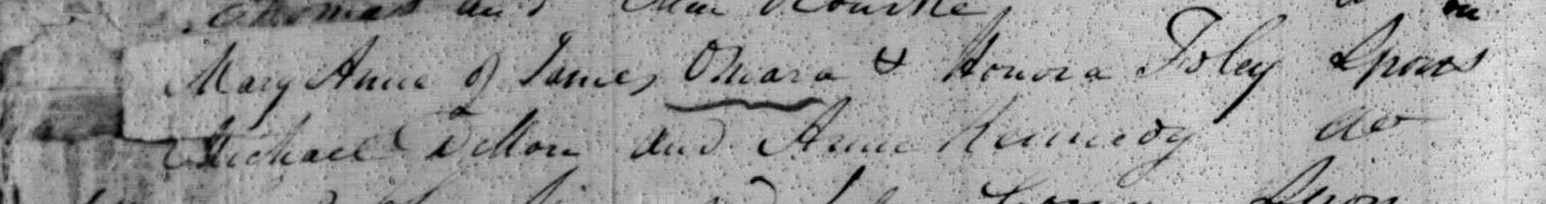 Thomas and Rourke
Mary Anne of James Omara & Honora Foley Spons
Michael Dillon and Anne Kennedy do
Spon